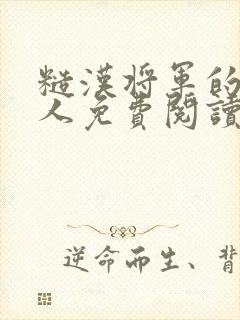 糙漢将军的
人免費閱讀
逆命而生、背